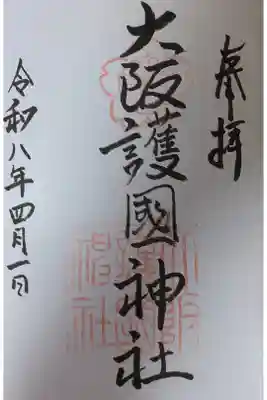 奉拝
大阪護國神社
令和八年四月一日